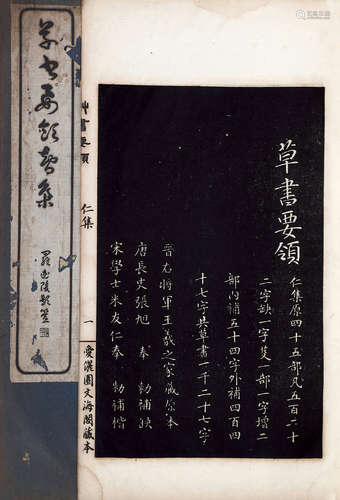 草書要領
仁集原四十五部凡五百二十
二字缺一字叟一部一字增二
部內補五十四字外補四百四
十七字共草書一千二十七字
晉右將軍王羲之家藏原本
唐長史張旭 奉 勅補缺
宋學士米友仁奉 勅補楷
艸書要領
仁集
一
愛儷園文海閣藏本
草書要領智集